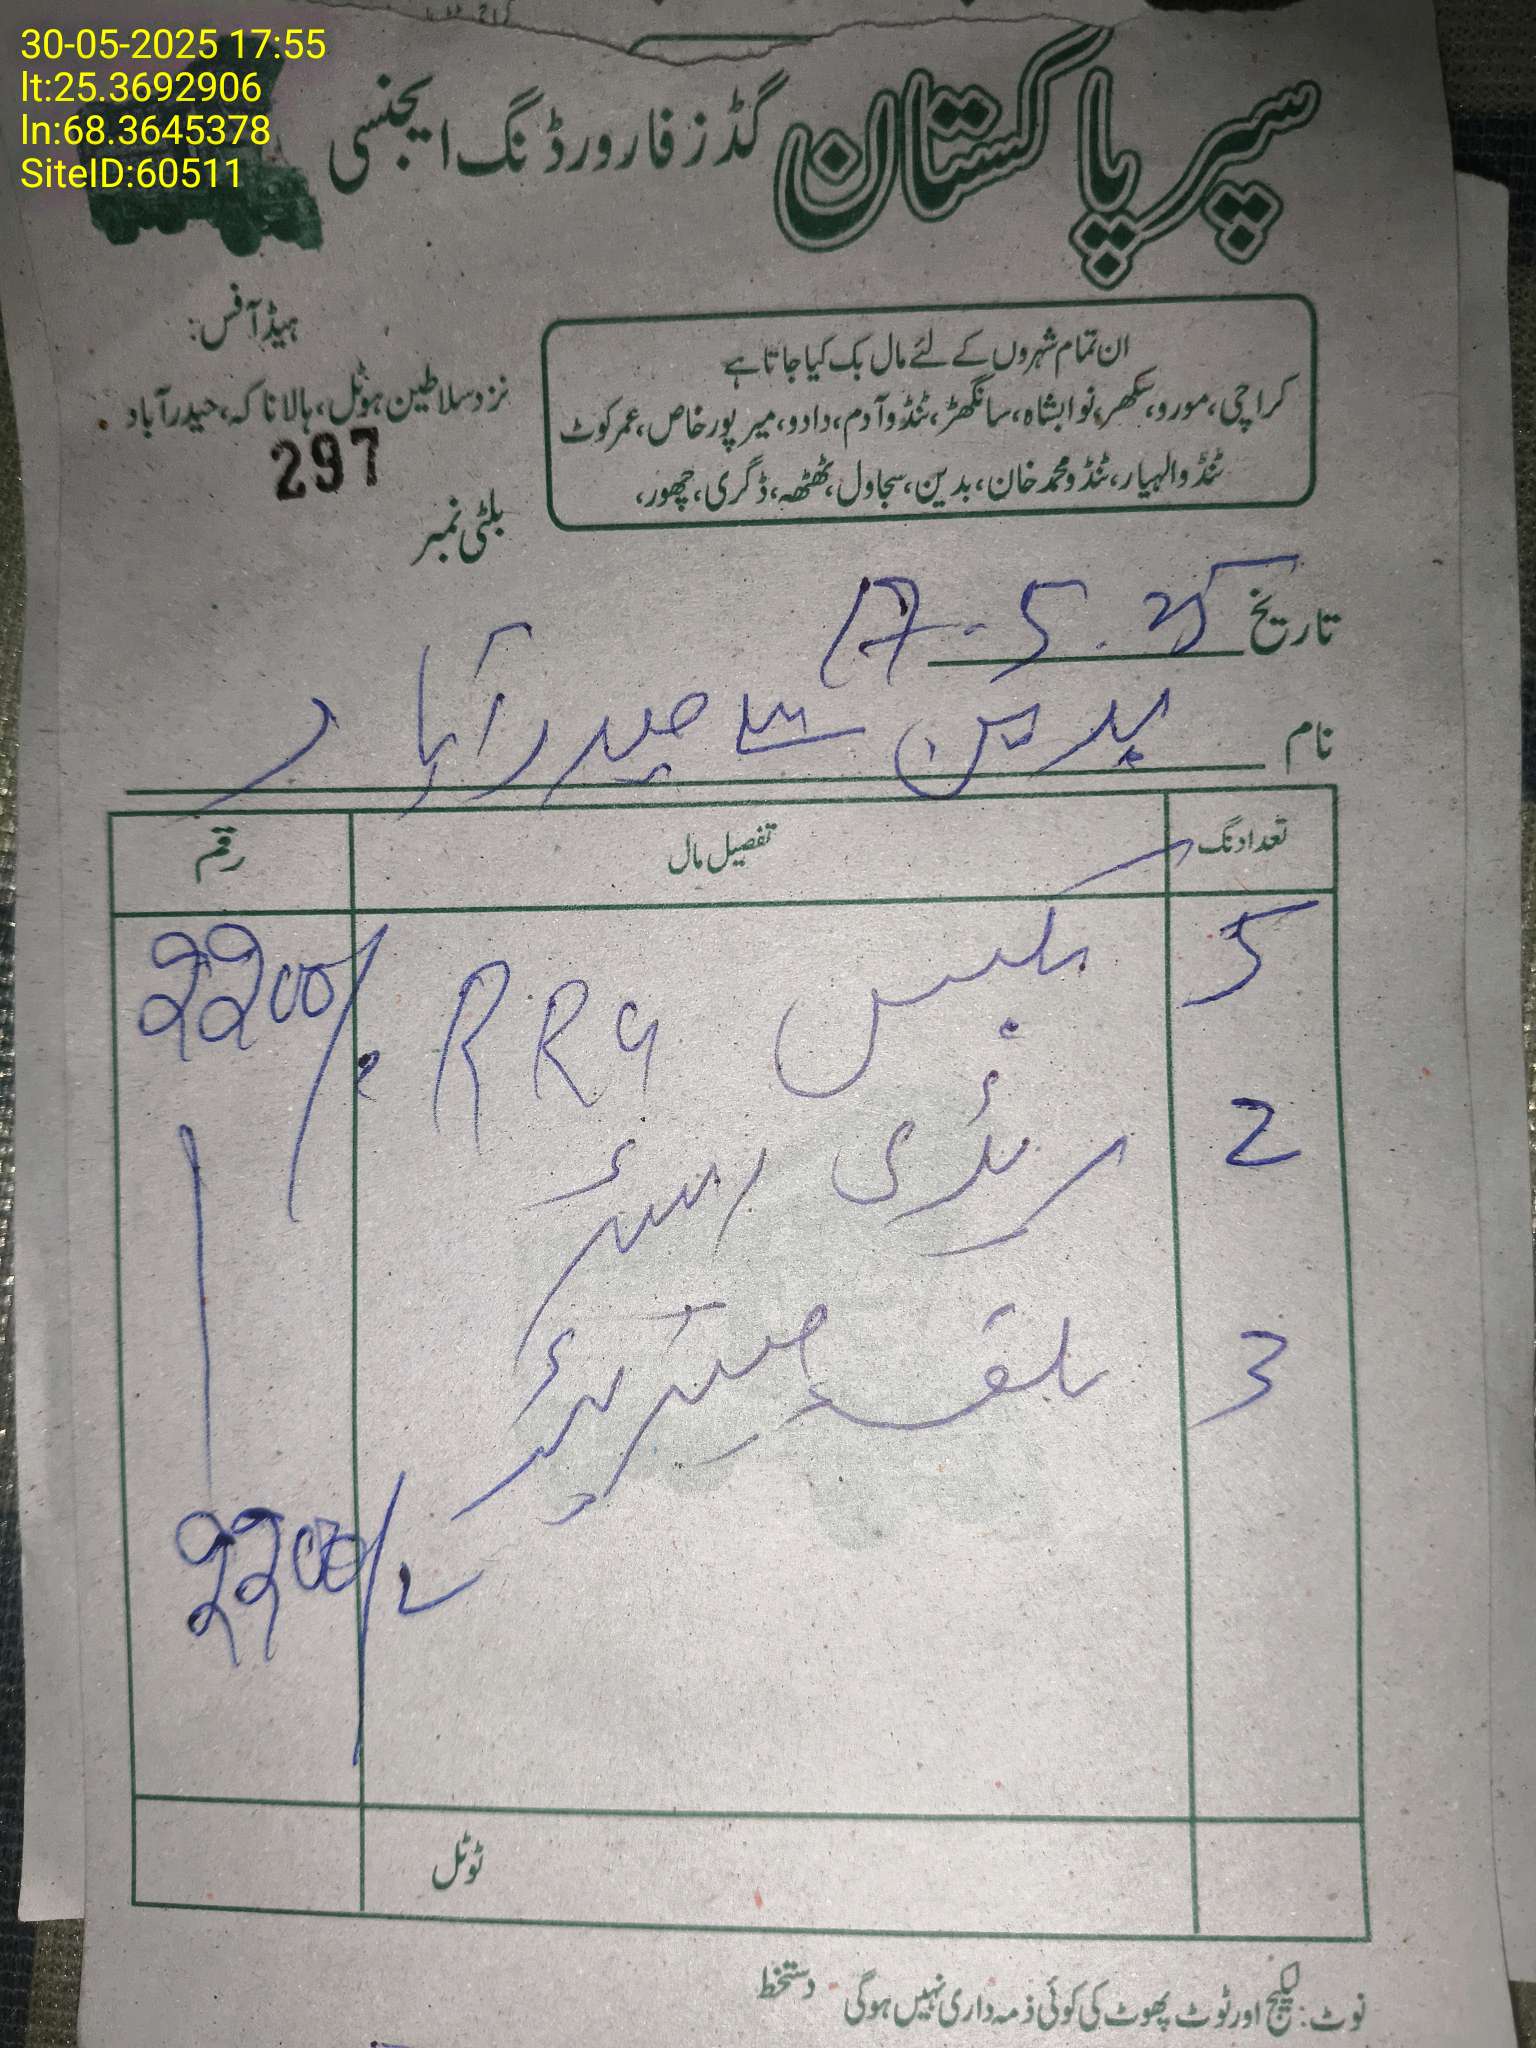 30-05-2025 17:55
lt:25.3692906
ln:68.3645378
SiteID:60511
سپر پاکستان گڈز فارورڈنگ ایجنسی
ان تمام شہروں کے لئے مال بک کیا جاتا ہے
کراچی، مورو، سکھر، نوابشاہ، سانگھڑ، ٹنڈو آدم، دادو، میرپور خاص، عمرکوٹ
ٹنڈوالہیار، ٹنڈو محمد خان، بدین، سجاول، ٹھٹھہ، ڈگری، چھور،
ہیڈ آفس:
نزد سلاطین ہوٹل، ہالا ناکہ، حیدرآباد
297
بلٹی نمبر
تاریخ 17-5.25
نام بدین سے حیدرآباد
تعداد نگ تفصیل مال رقم
5 بکس RRG 2200/
2
3
2200/
ٹوٹل
نوٹ: لیکج اور ٹوٹ پھوٹ کی کوئی ذمہ داری نہیں ہوگی دستخط